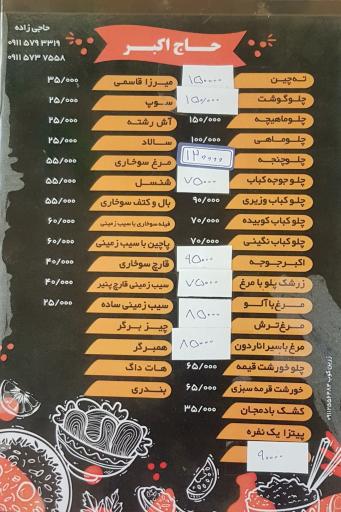 حاج اکبر
حاجی زاده
۰۹۱۱ ۵۷۹ ۳۳۱۹
۰۹۱۱ ۵۷۳ ۷۵۵۸
ته چین ۱۵۰۰۰۰
چلو گوشت ۱۵۰/۰۰۰
چلو ماهیچه ۱۵۰/۰۰۰
چلو ماهی ۱۰۰/۰۰۰
چلو چنجه ۱۲۰۰۰۰
چلو جوجه کباب ۷۵۰۰۰
چلو کباب وزیری ۹۰/۰۰۰
چلو کباب کوبیده ۷۰/۰۰۰
چلو کباب نگینی ۷۰/۰۰۰
اکبر جوجه ۹۵۰۰۰
زرشک پلو با مرغ ۷۵۰۰۰
مرغ با آلو
مرغ ترش ۸۵۰۰۰
مرغ با سیر اناردون ۸۵۰۰۰
چلو خورشت قیمه ۶۵/۰۰۰
خورشت قرمه سبزی ۶۵/۰۰۰
کشک بادمجان ۳۵/۰۰۰
پیتزا یک نفره
۹۰۰۰۰
میرزا قاسمی ۳۵/۰۰۰
سوپ ۲۵/۰۰۰
آش رشته ۲۵/۰۰۰
سالاد ۲۵/۰۰۰
مرغ سوخاری ۵۵/۰۰۰
شنسل ۵۵/۰۰۰
بال و کتف سوخاری ۵۵/۰۰۰
فیله سوخاری با سیب زمینی ۶۰/۰۰۰
پاچین با سیب زمینی ۶۰/۰۰۰
قارچ سوخاری ۴۰/۰۰۰
سیب زمینی قارچ پنیر ۴۰/۰۰۰
سیب زمینی ساده ۲۵/۰۰۰
چیز برگر
همبرگر
هات داگ
بندری